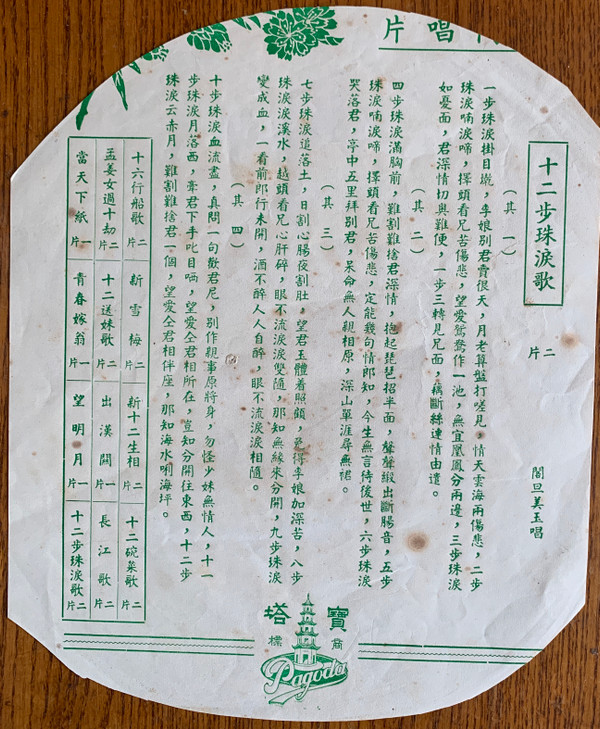 唱片
十二步珠淚歌
二片
閣旦美玉唱
(其一)
一步珠淚掛目墘，孝娘別君賣很天，月老算盤打嗟見，情天雲海兩傷悲，二步
珠淚喃淚啼，擇頭看兄苦傷悲，望愛鴛鴦作一池，無宜凰鳳分兩邊，三步珠淚
如憂面，君深情切與難便，一步三轉見兄面，藕斷絲連情由遺。
(其二)
四步珠淚滿胸前，難割難捨君深情，抱起琵琶招半面，聲聲緞出斷腸音，五步
珠淚喃淚啼，擇頭看兄苦傷悲，定能幾句情郎知，今生無言待後世，六步珠淚
哭落君，亭中五里拜別君，呆命無人親相原，深山單涯尋無裙。
(其三)
七步珠淚追落土，日割心腸夜割肚，望君玉體着照顧，免得孝娘加深苦，八步
珠淚淚溪水，越頭看兄心肝碎，眼不流淚淚雙隨，那知無緣來分開，九步珠淚
變成血，一看前郎行未開，酒不醉人人自醉，眼不流淚淚相隨。
(其四)
十步珠淚血流盡，真問一句歡君尼，別作親事原將身，勿怪少妹無情人，十一
步珠淚月落西，牽君下手叱目哂，望愛仝君相所在，豈知分開往東西，十二步
珠淚云赤月，難割難捨君一個，望愛仝君相伴座，那知海水唎海坪。
十六行船歌 二片
新雪梅 二片
新十二生相 二片
十二碗菜歌 二片
孟姜女過十劫 二片
十二送妹歌 二片
出漢關 一片
長江歌 二片
當天下紙 一片
青春嫁翁 一片
望明月 一片
十二步珠淚歌 二片
寶塔
商標
Pagoda